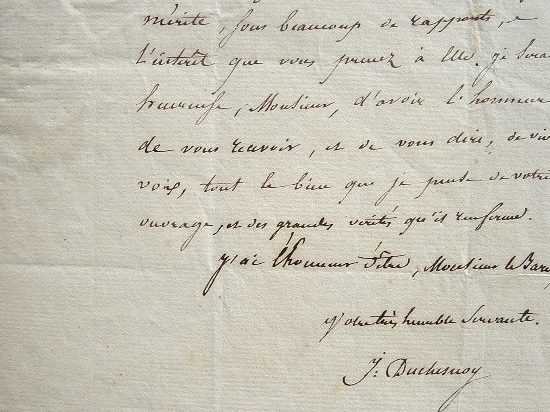 mérite, sous beaucoup de rapports, e
l'intérêt que vous prenez à Elle. je sera
heureuse, Monsieur, d'avoir l'honneur
de vous recevoir, et de vous dire, de viv
voix, tout le bien que je pense de votre
ouvrage, et des grandes vérités qu'il renferme.
J'ai l'honneur d'être, Monsieur le Baro
Votre très humble Servante.
J. Duchesnoy